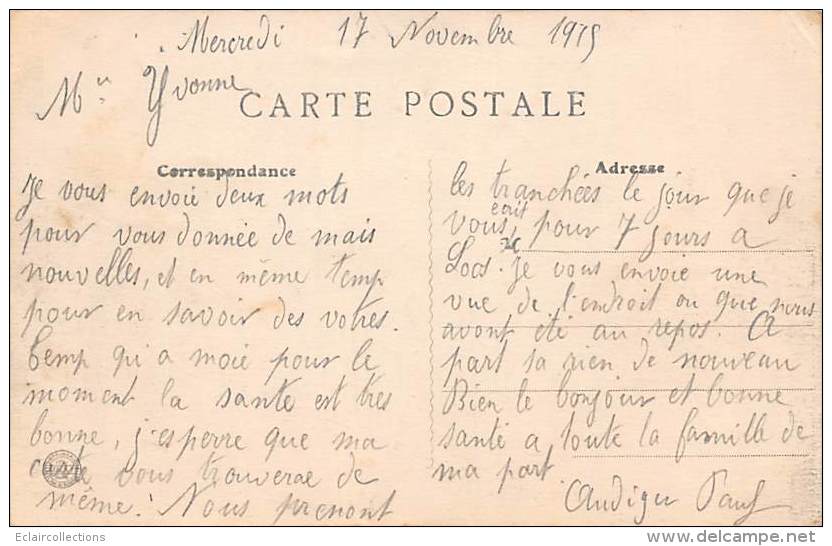 Mercredi 17 Novembre 1915
Mlle Yvonne
CARTE POSTALE
Correspondance
Je vous envoie deux mots
pour vous donnée de mais
nouvelles, et en même temp
pour en savoir des votres.
temp qi a moie pour le
moment la sante est tres
bonne, j'esperre que ma
carte vous trouverae de
même. Nous prenont
Adresse
les tranchées le jour que je
vous ecrit, pour 7 jours a
Loos. Je vous envoie une
vue de l'endroit ou que nous
avont été au repos. A
part sa rien de nouveau
Bien le bonjour et bonne
santé a toute la famille de
ma part
Paul
Eclaircollections
©delcampe.net